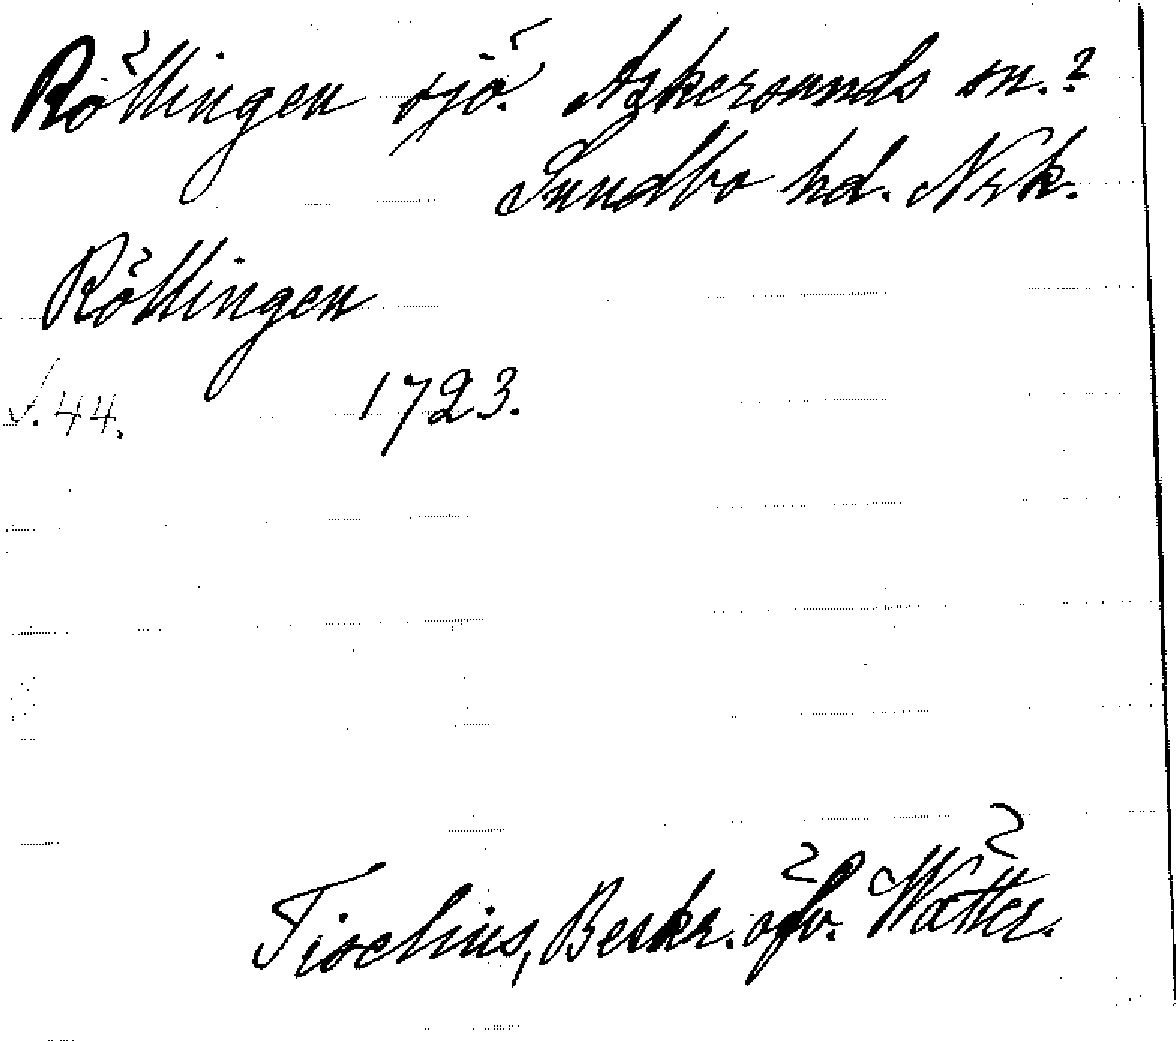 Röllingen sjö. Askersunds sn.?
Sundbo hd. Nrk.
Röllingen
S. 44. 1723.
Tiselius, Beskr. öfv. Wätter.